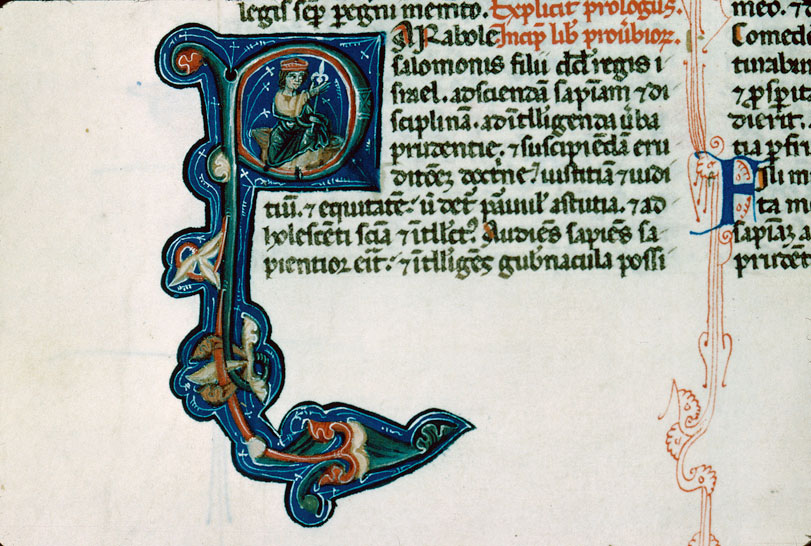 legis sēp pegni merito. Explicit prologus.
PARabole Incip̄ lib̄ prou̇bioꝝ.
salomonis filii dd̄ regis i
srael. ad sciendā sapīam ⁊ di
sciplinā. ad ītlligenda ūba
prudentie. ⁊ suscipiēdā eru
ditōēȝ doct'ne ⁊ iustitiā ⁊ iudi
tiū. ⁊ equitatē. ū det᷑ p̄auul' astutia. ⁊ ad
holescēti scīa ⁊ ītllect᷒. Audiēs sapiēs sa
pientior erit. ⁊ ītlligēs gub̄nacula possi
meo. ⁊ d
Comede
turabun
⁊ ꝓsꝑita
dierit.
tia ꝑfru
Fili mi
ita me
sapīaȝ a
prudēt